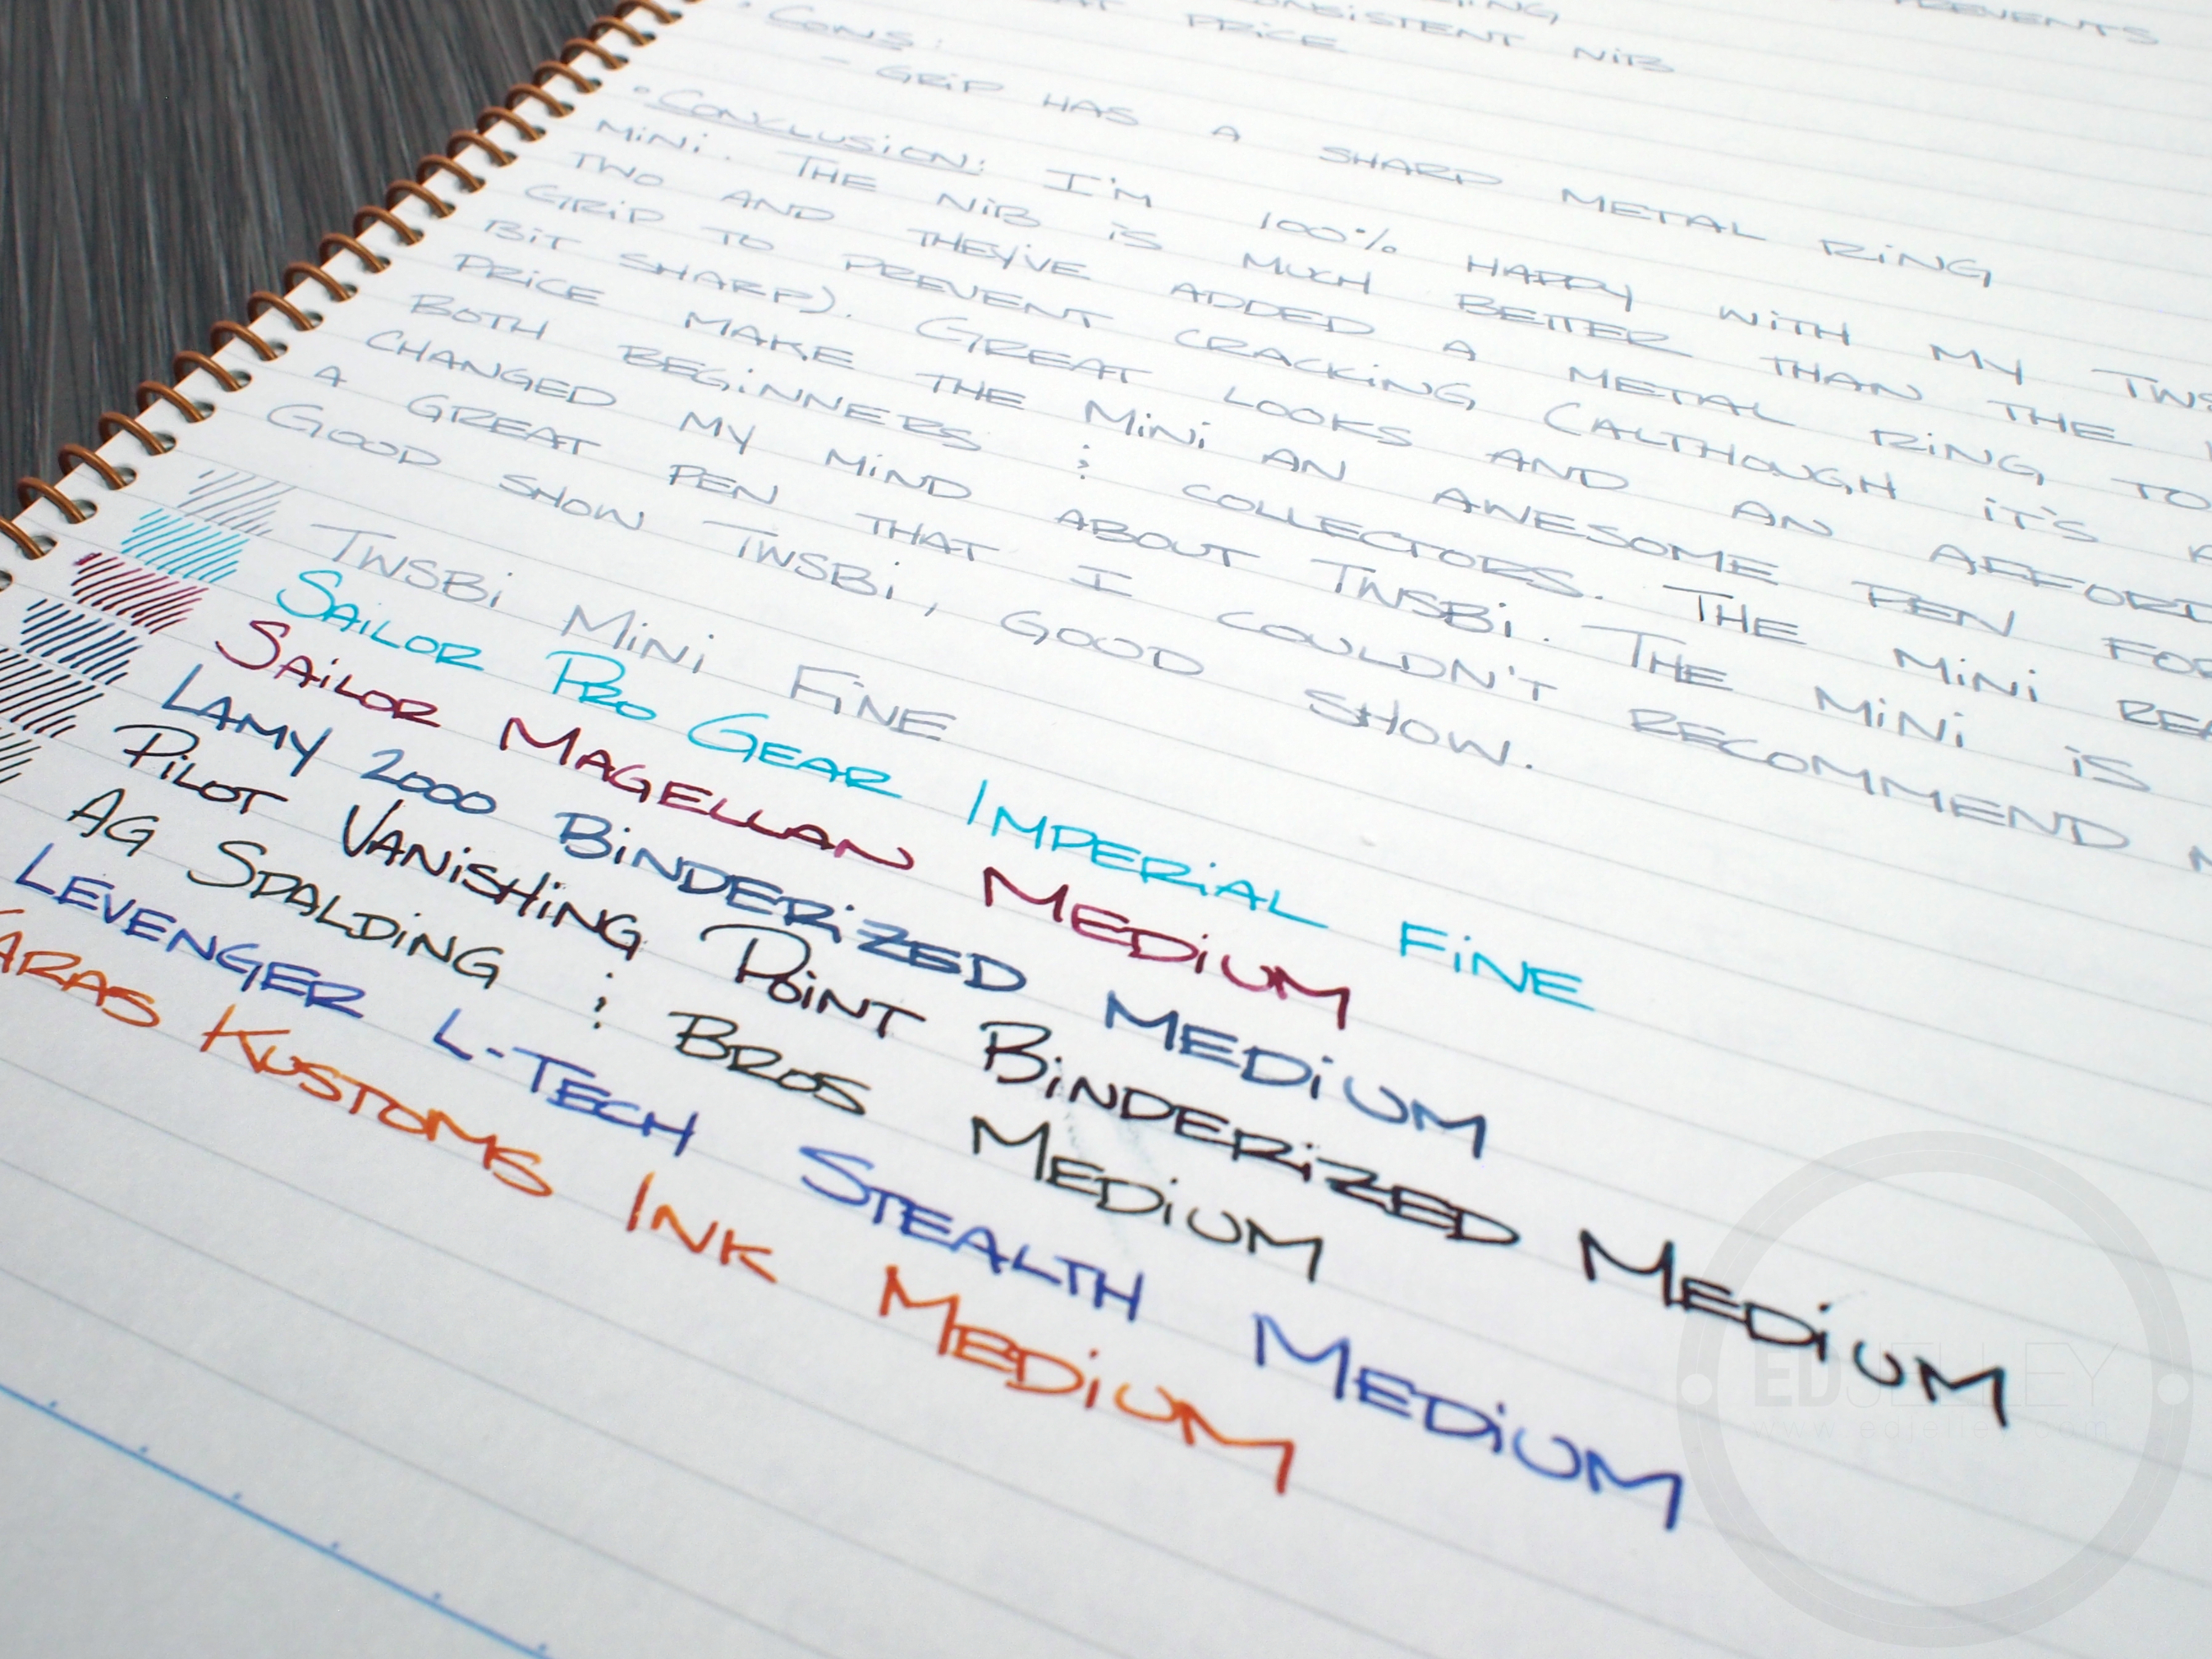 PREVENTS
PRICE CONSISTENT NIB
• CONS:
- GRIP HAS A SHARP METAL RING
• CONCLUSION: I'M 100% HAPPY WITH MY
MINI. THE NIB IS MUCH BETTER THAN THE
TWO AND THEY'VE ADDED A METAL RING TO
GRIP TO PREVENT CRACKING (ALTHOUGH IT'S
BIT SHARP). GREAT LOOKS AND AN
PRICE MAKE THE MINI AN AWESOME PEN FOR
BOTH BEGINNERS & COLLECTORS. THE MINI
CHANGED MY MIND ABOUT TWSBI. THE MINI IS
A GREAT PEN THAT I COULDN'T RECOMMEND
GOOD SHOW TWSBI, GOOD SHOW.
TWSBI MINI FINE
SAILOR PRO GEAR IMPERIAL FINE
SAILOR MAGELLAN MEDIUM
LAMY 2000 BINDERIZED MEDIUM
PILOT VANISHING POINT BINDERIZED MEDIUM
AG SPALDING & BROS MEDIUM
LEVENGER L-TECH STEALTH MEDIUM
KARAS KUSTOMS INK MEDIUM
EDJELLEY
www.edjelley.com